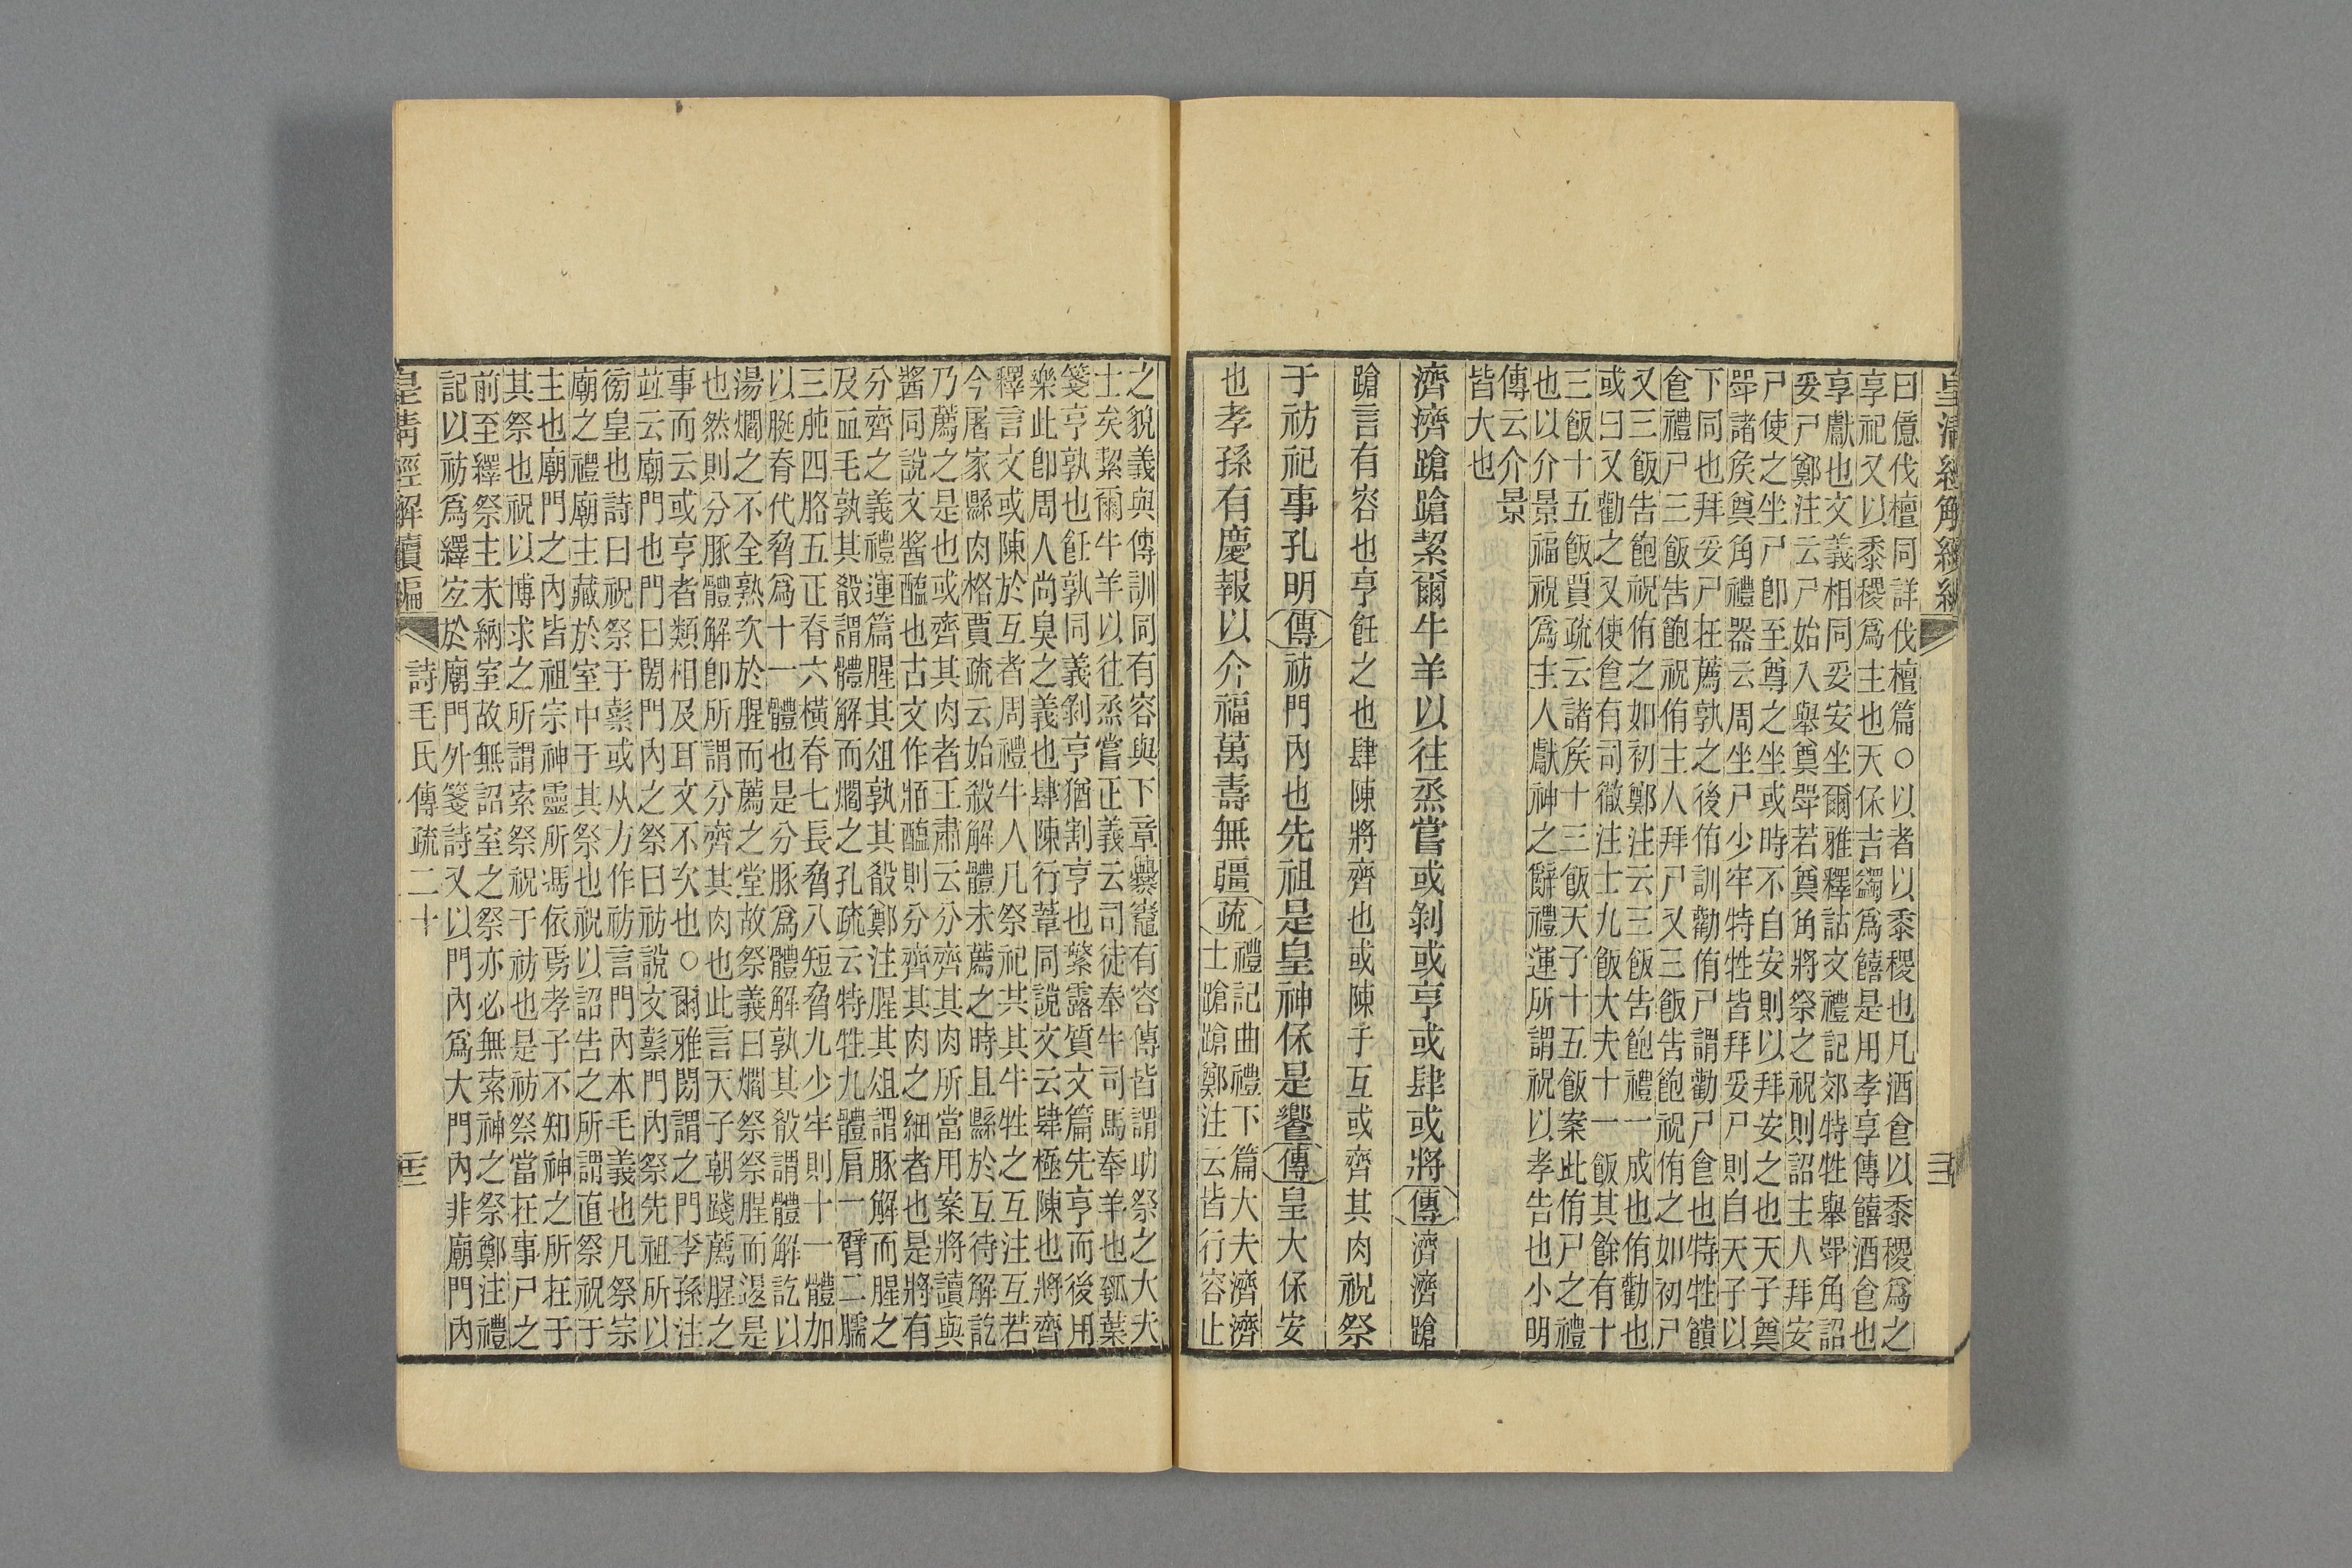 皇清經解續編 三
曰億伐檀同詳伐檀篇○以者以黍稷也凡酒食以黍稷爲之
享祀又以黍稷爲主也天保吉蠲爲饎是用孝享傳饎酒食也
享獻也文義相同妥安坐爾雅釋詁文禮記郊特牲舉斝角詔
妥尸鄭注云尸始入舉奠斝若奠角將祭之祝則詔主人拜安
尸使之坐尸卽至尊之坐或時不自安則以拜安之也天子奠
斝諸矦奠角禮器云周坐尸少牢特牲皆拜妥尸則自天子以
下同也拜妥尸在薦孰之後侑訓勸侑尸謂勸尸食也特牲饋
食禮尸三飯告飽祝侑主人拜尸又三飯告飽祝侑之如初尸
又三飯告飽祝侑之如初鄭注云三飯告飽禮一成也侑勸也
或曰又勸之又使食有司徹注士九飯大夫十一飯其餘有十
三飯十五飯賈疏云諸矦十三飯天子十五飯案此侑尸之禮
也以介景福祝爲主人獻神之辭禮運所謂祝以孝告也小明
傳云介景
皆大也
濟濟蹌蹌絜爾牛羊以往烝嘗或剝或亨或肆或將傳濟濟蹌
蹌言有容也亨飪之也肆陳將齊也或陳于互或齊其肉祝祭
于祊祀事孔明傳祊門內也先祖是皇神保是饗傳皇大保安
也孝孫有慶報以介福萬壽無疆疏禮記曲禮下篇大夫濟濟
士蹌蹌鄭注云皆行容止
之貌義與傳訓同有容與下章爨竈有容傳皆謂助祭之大夫
士矣絜爾牛羊以往烝嘗正義云司徒奉牛司馬奉羊也瓠葉
箋亨孰也飪孰同義剝亨猶割亨也繁露質文篇先亨而後用
樂此卽周人尚臭之義也肆陳行葦同說文云肆極陳也將齊
釋言文或陳於互者周禮牛人凡祭祀共其牛牲之互注互若
今屠家縣肉格賈疏云始殺解體未薦之時且縣於互待解訖
乃薦之是也或齊其肉者王肅云分齊其肉所當用案將讀與
醬同說文醬醢也古文作𤖽醢則分齊其肉之細者也是將有
分齊之義禮運篇腥其俎孰其殽鄭注腥其俎謂豚解而腥之
及血毛孰其殽謂體解而爓之孔疏云特牲九體肩一臂二臑
三肫四胳五正脊六橫脊七長脅八短脅九少牢則十一體加
以脡脊代脅爲十一體也是分豚爲體解孰其殽謂體解訖以
湯爓之不全熟次於腥而薦之堂故祭義曰爓祭祭腥而退是
也然則分豚體解卽所謂分齊其肉也此言天子朝踐薦腥之
事而云或亨者類相及耳文不次也○爾雅閍謂之門李孫注
竝云廟門也門曰閍門內之祭曰祊說文䃾門內祭先祖所以
徬皇也詩曰祝祭于䃾或从方作祊言門內本毛義也凡祭宗
廟之禮廟主藏於室中于其祭也祝以詔告之所謂直祭祝于
主也廟門之內皆祖宗神靈所馮依焉孝子不知神之所在于
其祭也祝以博求之所謂索祭祝于祊也是祊祭當在事尸之
前至繹祭主未納室故無詔室之祭亦必無索神之祭鄭注禮
記以祊爲繹㝎於廟門外箋詩又以門內爲大門內非廟門內
皇清經解續編 詩毛氏傳疏二十